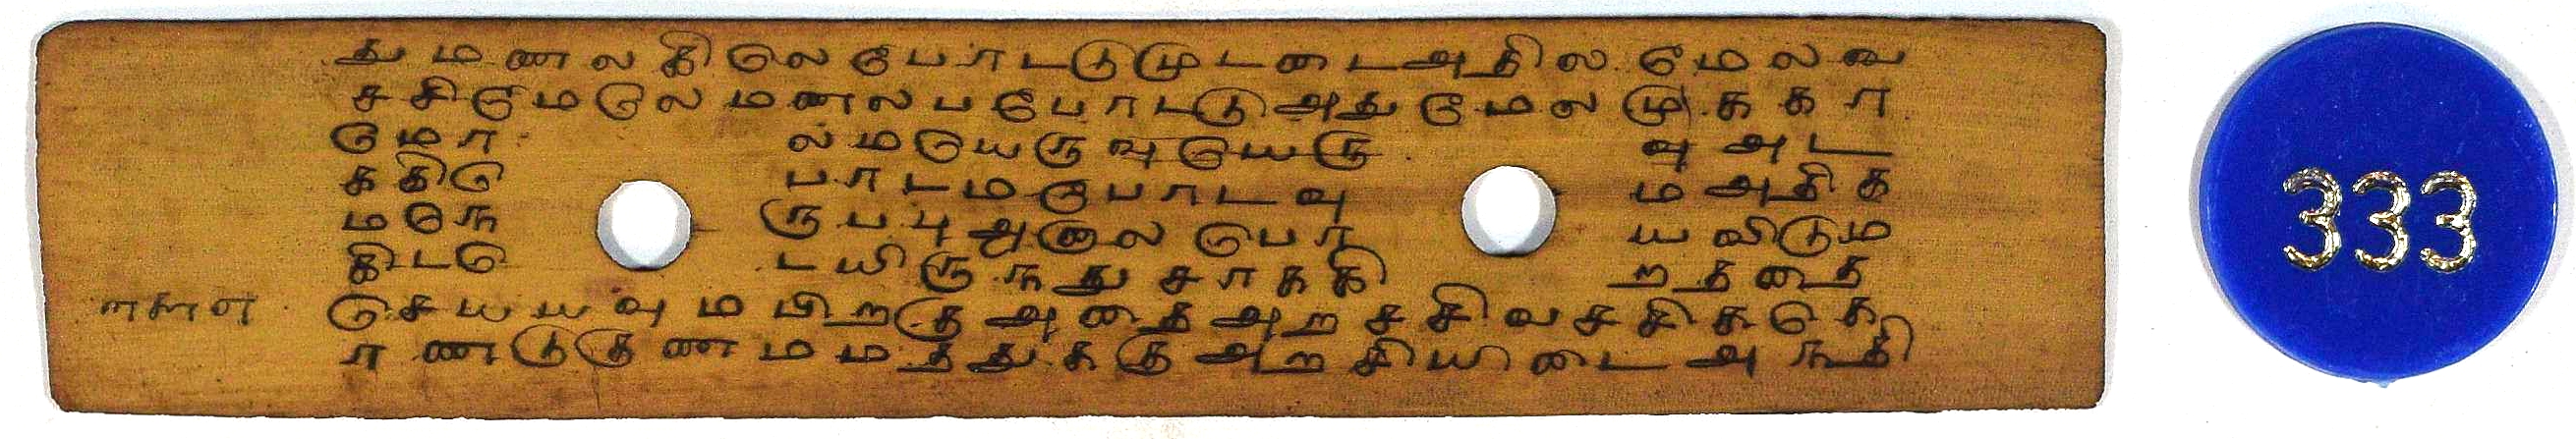 து மணலகிலெபோட்டுமுடடைஅதில மேலவ
சசிமேலெமணலபபோடடுஅதுமேலமுககா
மேரா லமயெருவுயெரு வு அட
ககிடு பாடமகுபோடவு ம அதிக
மநெ ருபபுஅனால பொ யவிடும
கிடடெ டயிருநதுசாககி றததை
செயயவுமபிறகுஅதைஅறசசிவசசிககெ
ரணடுகுணமமததுககுஅறசியிடைஅநதி
333